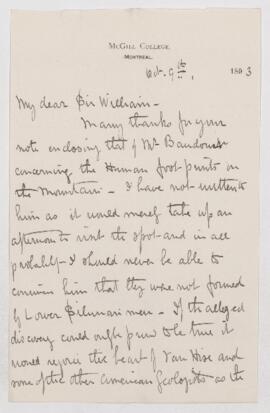 McGill College,
Montreal.
Oct. 9th, 1893
My dear Sir William –
Many thanks for your
note enclosing that of Mr
concerning the Human foot prints on
the Mountain – I have not written to
him as it would merely take up an
afternoon to visit the spot and in all
probability I should never be able to
convince him that they were not formed
by Lower Silurian men – If the alleged
discovery could only be proved to be true it
would rejoice the heart of Van Hise and
some of the other American Geologists as the